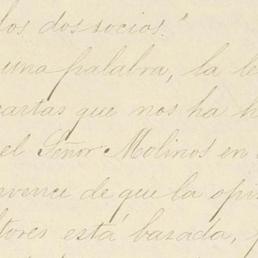 los dos socios."
una palabra, la le
cartas que nos ha h
el Señor Molinos en
vence de que la opi
tores está basada,